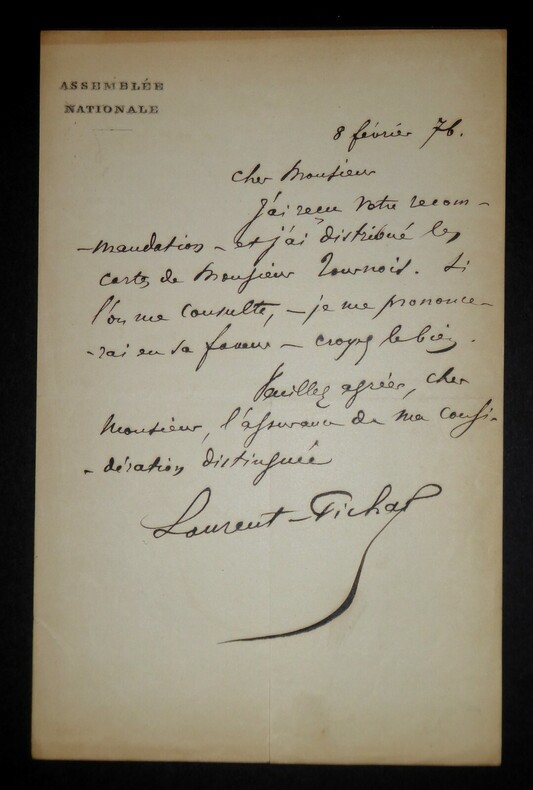 ASSEMBLÉE
NATIONALE
8 février 76.
Cher Monsieur
J'ai reçu votre recom-
-mandation - et j'ai distribué les
cartes de Monsieur Tournois. Si
l'on me consulte, - je me prononce-
-rai en sa faveur - croyez le bien.
Veuillez agréer, cher
Monsieur, l'assurance de ma consi-
-dération distinguée
Laurent-Pichat